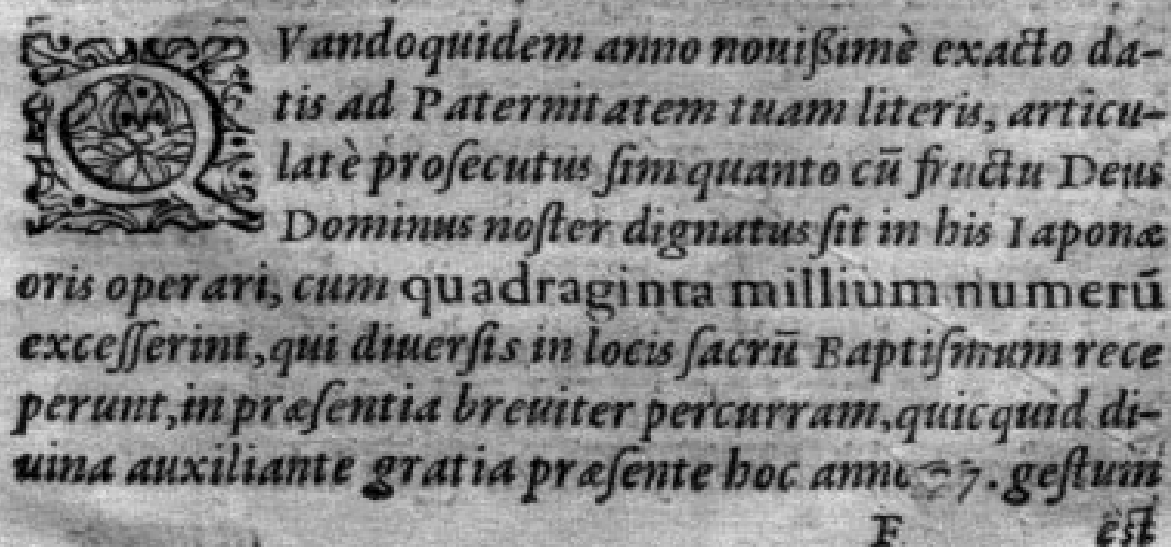 QVandoquidem anno nouißimè exacto da-
tis ad Paternitatem tuam literis, articu-
latè proſecutus ſim quanto cū fructu Deus
Dominus noſter dignatus ſit in his Iaponæ
oris operari, cum quadraginta millium numerū
exceſſerint, qui diuerſis in locis ſacrū Baptiſmum rece
perunt, in præſentia breuiter percurram, quicquid di-
uina auxiliante gratia præſente hoc anno 7. geſtum
F eſt